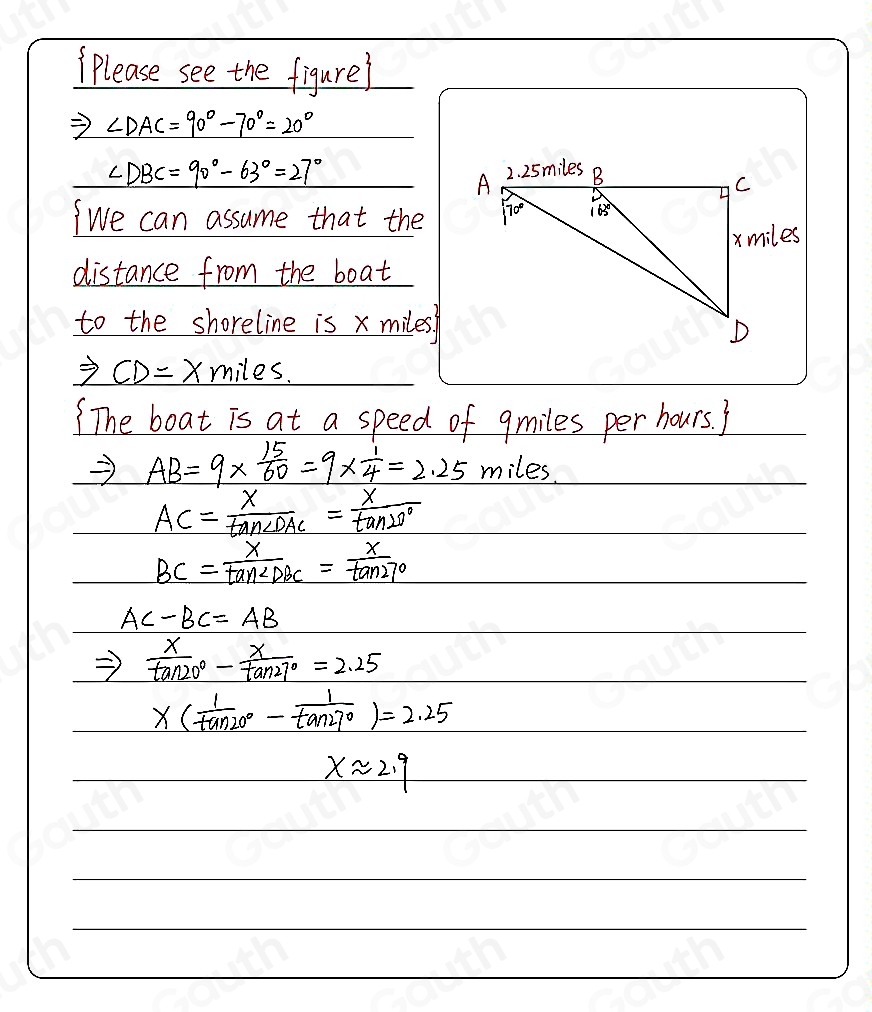 {Please see the figure}
⇒ ∠DAC = 90° - 70° = 20°
∠DBC = 90° - 63° = 27°
{We can assume that the
distance from the boat
to the shoreline is x miles.}
⇒ CD = x miles.
A 2.25 miles B C
70° 63°
x miles
D
{The boat is at a speed of 9 miles per hours.}
⇒ AB = 9 × 15/60 = 9 × 1/4 = 2.25 miles.
AC = x/tan∠DAC = x/tan20°
BC = x/tan∠DBC = x/tan27°
AC - BC = AB
⇒ x/tan20° - x/tan27° = 2.25
x (1/tan20° - 1/tan27°) = 2.25
x ≈ 2.9
Gauth